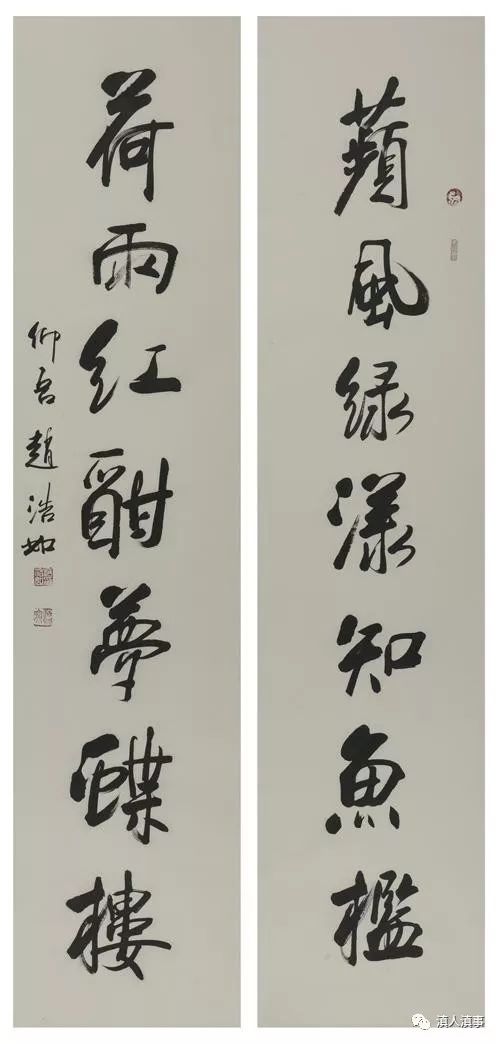 蘋風绿漾知魚檻
荷雨红酣夢蝶樓
仰吾趙浩如
滇人滇事